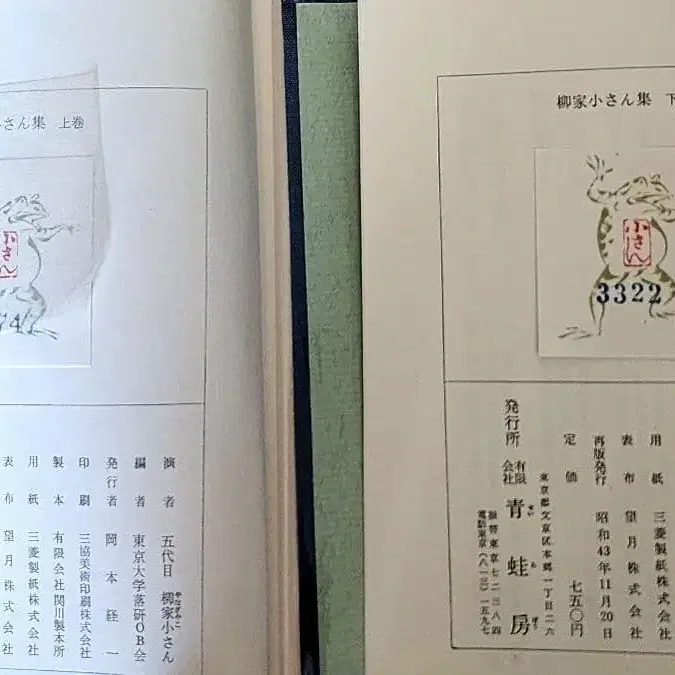 さん集 上巻
小さん
演者 五代目 柳家小さん
編者 東京大学落研OB会
発行者 岡本経一
印刷 三協美術印刷株式会社
製本 有限会社関川製本所
用紙 三菱製紙株式会社
表布 望月株式会社
柳家小さん集 下
小さん
3322
用紙 三菱製紙株式会社
表布 望月株式会社
再版発行 昭和43年11月20日
定価 七五〇円
発行所 有限会社 青蛙房
せいあぼう
東京都文京区本郷一丁目二六
振替東京七二三八四
電話東京(八一三)一五九七